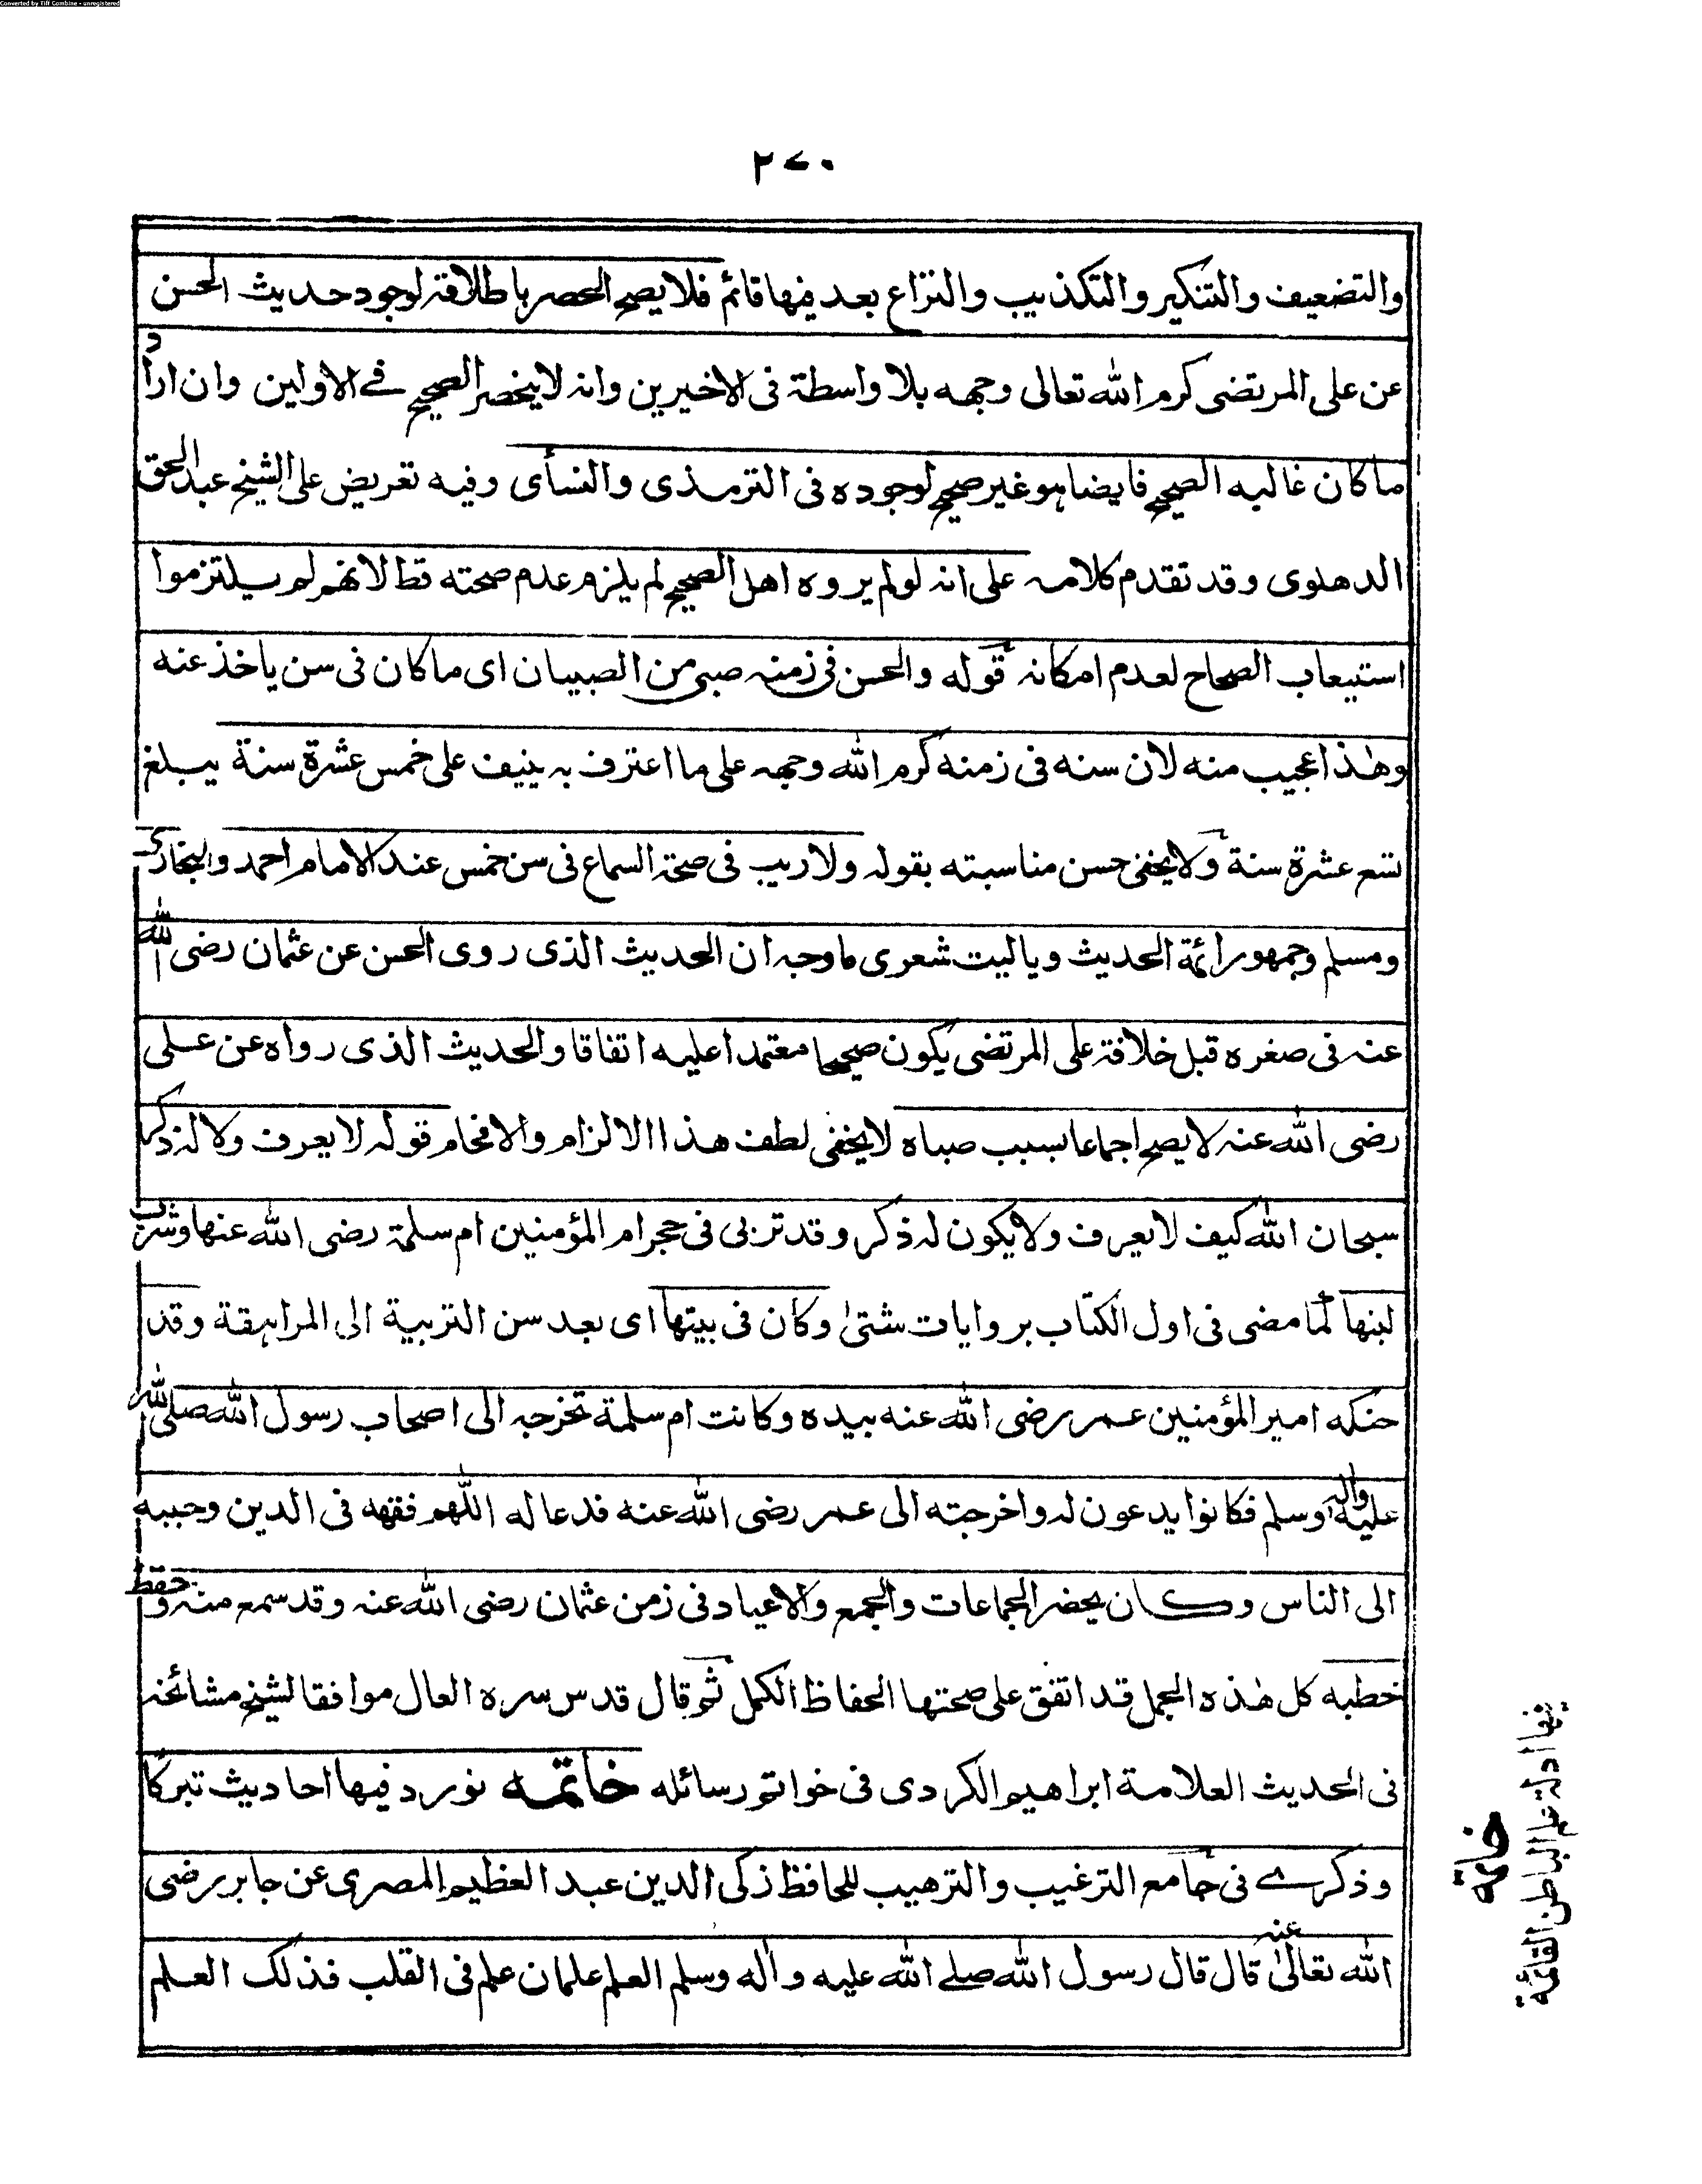 Converted by Tiff Combine - unregistered
٢٧٠
والتضعيف والتنكير والتكذيب والنزاع بعد فيها قائم فلا يصح الحصر باطلاقه لوجود حديث الحسن
عن على المرتضى كرم الله تعالى وجهه بلا واسطة فى الاخيرين وانه لا ينحصر الصحيح فے الاولين وان اراد
ما كان غالبه الصحيح فايضا هو غير صحيح لوجوده فى الترمذى والنسأى وفيه تعريض على الشيخ عبد الحق
الدهلوى وقد تقدم كلامه على انه لولم يروه اهل الصحيح لم يلزم عدم صحته قط لانهم لم يلتزموا
استيعاب الصحاح لعدم امكانه قوله والحسن فى زمنه صبى من الصبيان اى ما كان فى سن ياخذ عنه
وهذا عجيب منه لان سنه فى زمنه كرم الله وجهه على ما اعترف به ينيف على خمس عشرة سنة يبلغ
تسع عشرة سنة ولا يخفى حسن مناسبته بقوله ولا ريب فى صحة السماع فى سن خمس عند الامام احمد والبخارى
ومسلم وجمهور ائمة الحديث وياليت شعرى ما وجه ان الحديث الذى روى الحسن عن عثمان رضى الله
عنه فى صغره قبل خلافة على المرتضى يكون صحيحا معتمدا عليه اتفاقا والحديث الذى رواه عن على
رضى الله عنه لا يصح اجماعا بسبب صباه لا يخفى لطف هذا الالزام والافحام قوله لا يعرف ولا له ذكر
سبحان الله كيف لا يعرف ولا يكون له ذكر وقد تربى فى حجر ام المؤمنين ام سلمة رضى الله عنها وشرب
لبنها كما مضى فى اول الكتاب بروايات شتىٰ وكان فى بيتها اى بعد سن التربية الى المراهقة وقد
حنكه امير المؤمنين عمر رضى الله عنه بيده وكانت ام سلمة تخرجه الى اصحاب رسول الله صلى الله
عليه واٰله وسلم فكانوا يدعون له واخرجته الى عمر رضى الله عنه فدعا له اللّٰهم فقهه فى الدين وحببه
الى الناس وكان يحضر الجماعات والجمع والاعياد فى زمن عثمان رضى الله عنه وقد سمع منه وحفظ
خطبه كل هٰذه الجمل قد اتفق على صحتها الحفاظ الكمل ثم قال قدس سره العال موافقا لشيخ مشائخه
فى الحديث العلامة ابراهيم الكردى فى خواتم رسائله خاتمه نورد فيها احاديث تبركا
وذكرے فى جامع الترغيب والترهيب للحافظ زكى الدين عبد العظيم المصرى عن جابر رضى
الله تعالىٰ عنه قال قال رسول الله صلے الله عليه واٰله وسلم العلم علمان علم فى القلب فذلك العلم
خاتمة
فيها ادلة علم الباطن القائمة